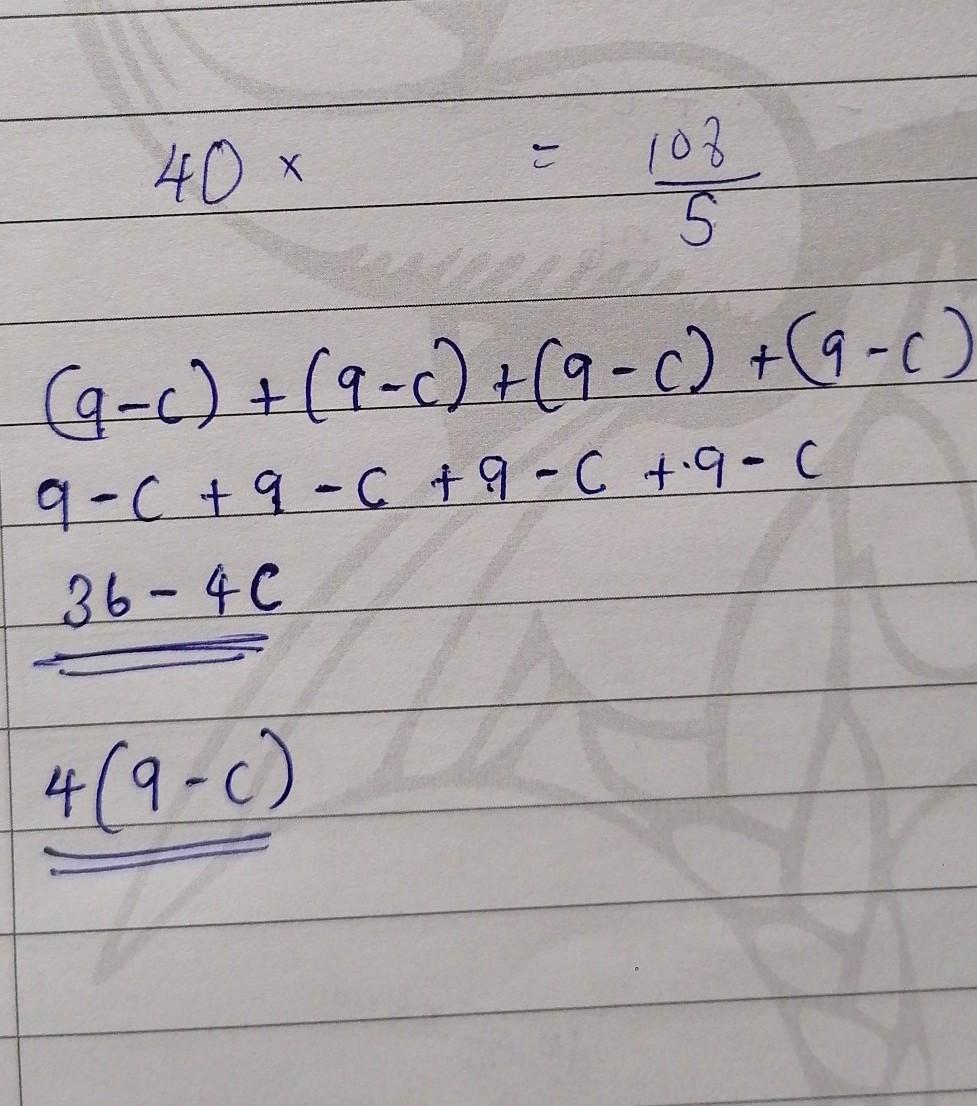 40 × = 108/5
(9-c) + (9-c) + (9-c) + (9-c)
9-c + 9-c + 9-c + 9-c
36-4c
4(9-c)